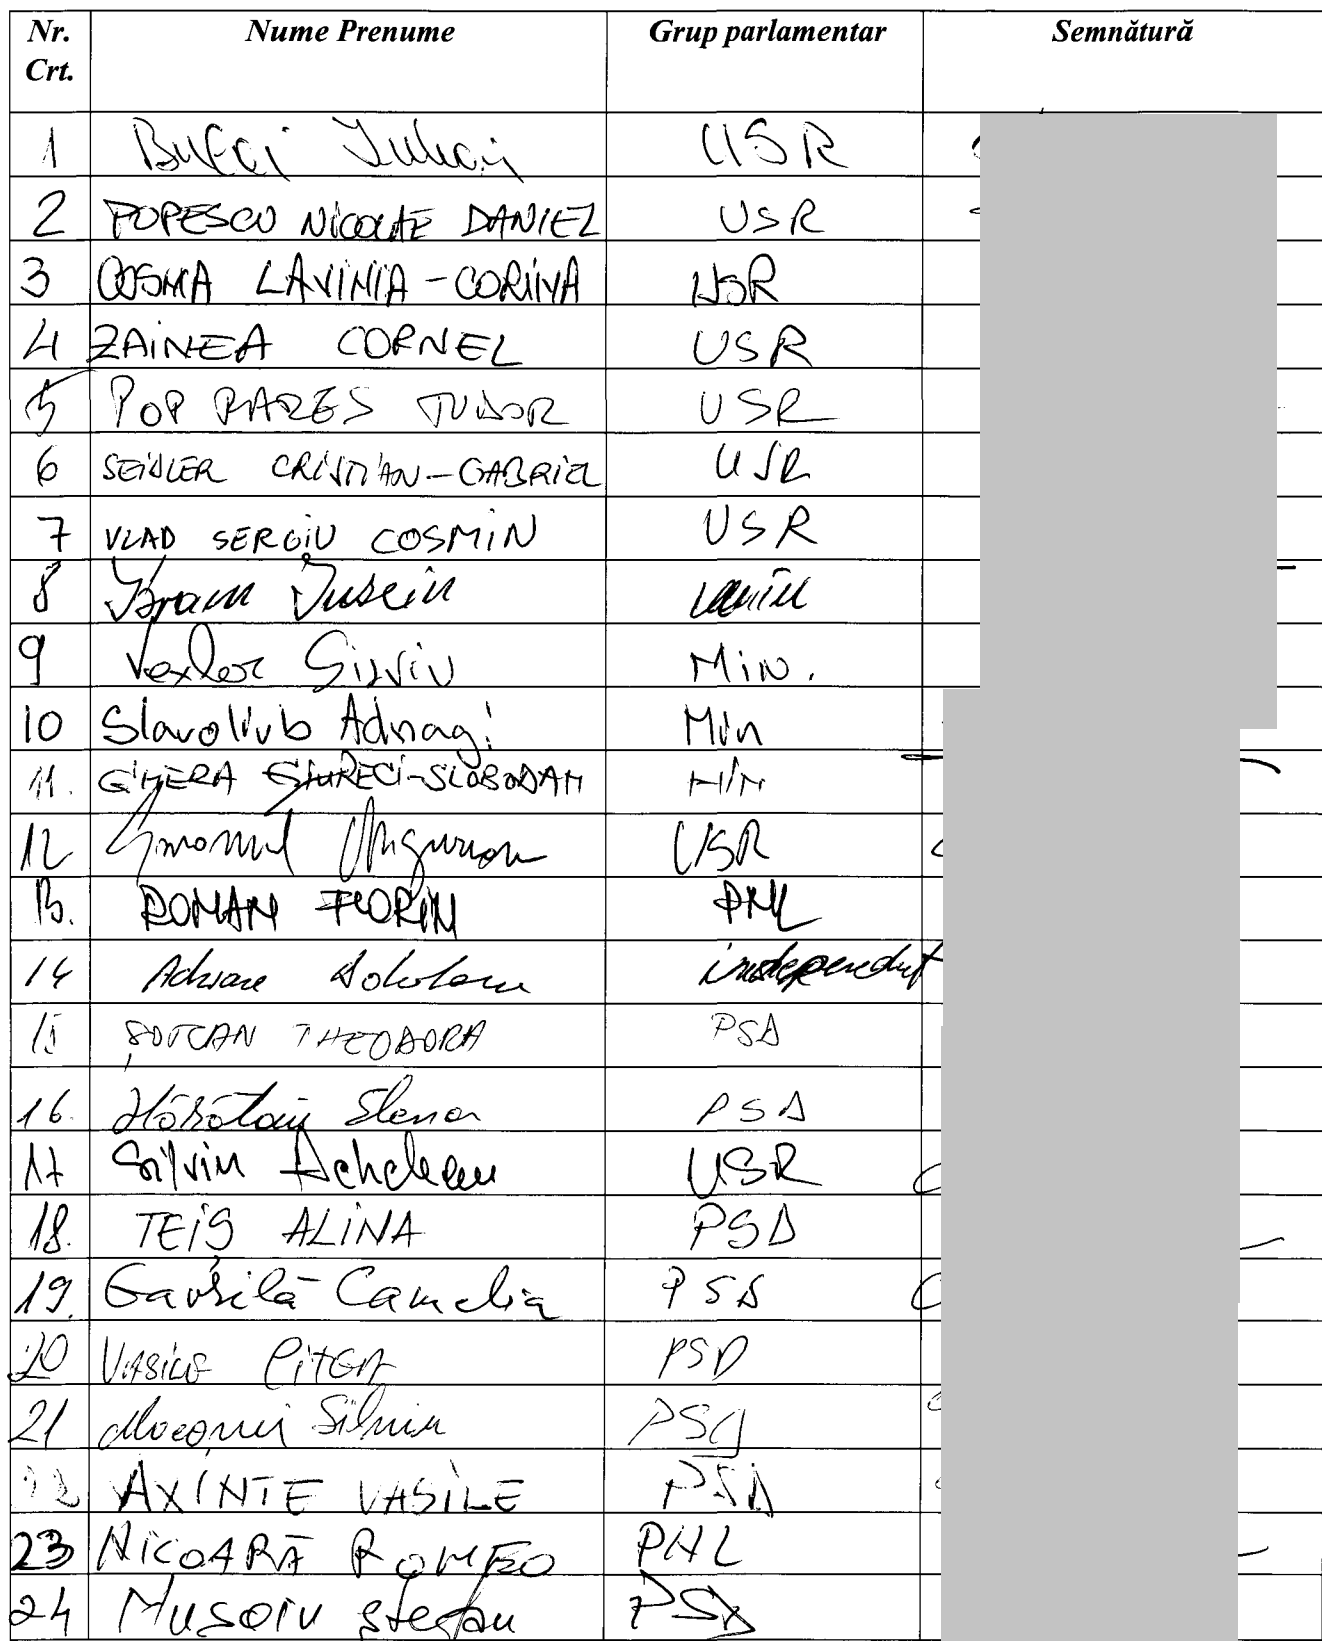 Nr. Crt. Nume Prenume Grup parlamentar Semnătură
1 Iulian USR
2 POPESCU NICOLAE DANIEL USR
3 COSMA LAVINIA-CORINA USR
4 ZAINEA CORNEL USR
5 POP RAREȘ TUDOR USR
6 SEIDLER CRISTIAN-GABRIEL USR
7 VLAD SERGIU COSMIN USR
8 Ibram Iusein
9 Vexler Silviu Min.
10 Slavoliub Adnagi Min
11. GHERA GIURECI-SLOBODAN MIN
12 Emanuel Ungureanu USR
13. ROMAN FLORIN PNL
14 independent
15 ȘOTCAN THEODORA PSD
16. Hărătău Elena PSD
17 Silviu Dehelean USR
18. TEIȘ ALINA PSD
19. Gavrilă Camelia PSD
20 VASILE CÎTEA PSD
21 Mocanu Silviu PSD
22 AXINTE VASILE PSD
23 NICOARĂ ROMEO PNL
24 Mușoiu Ștefan PSD